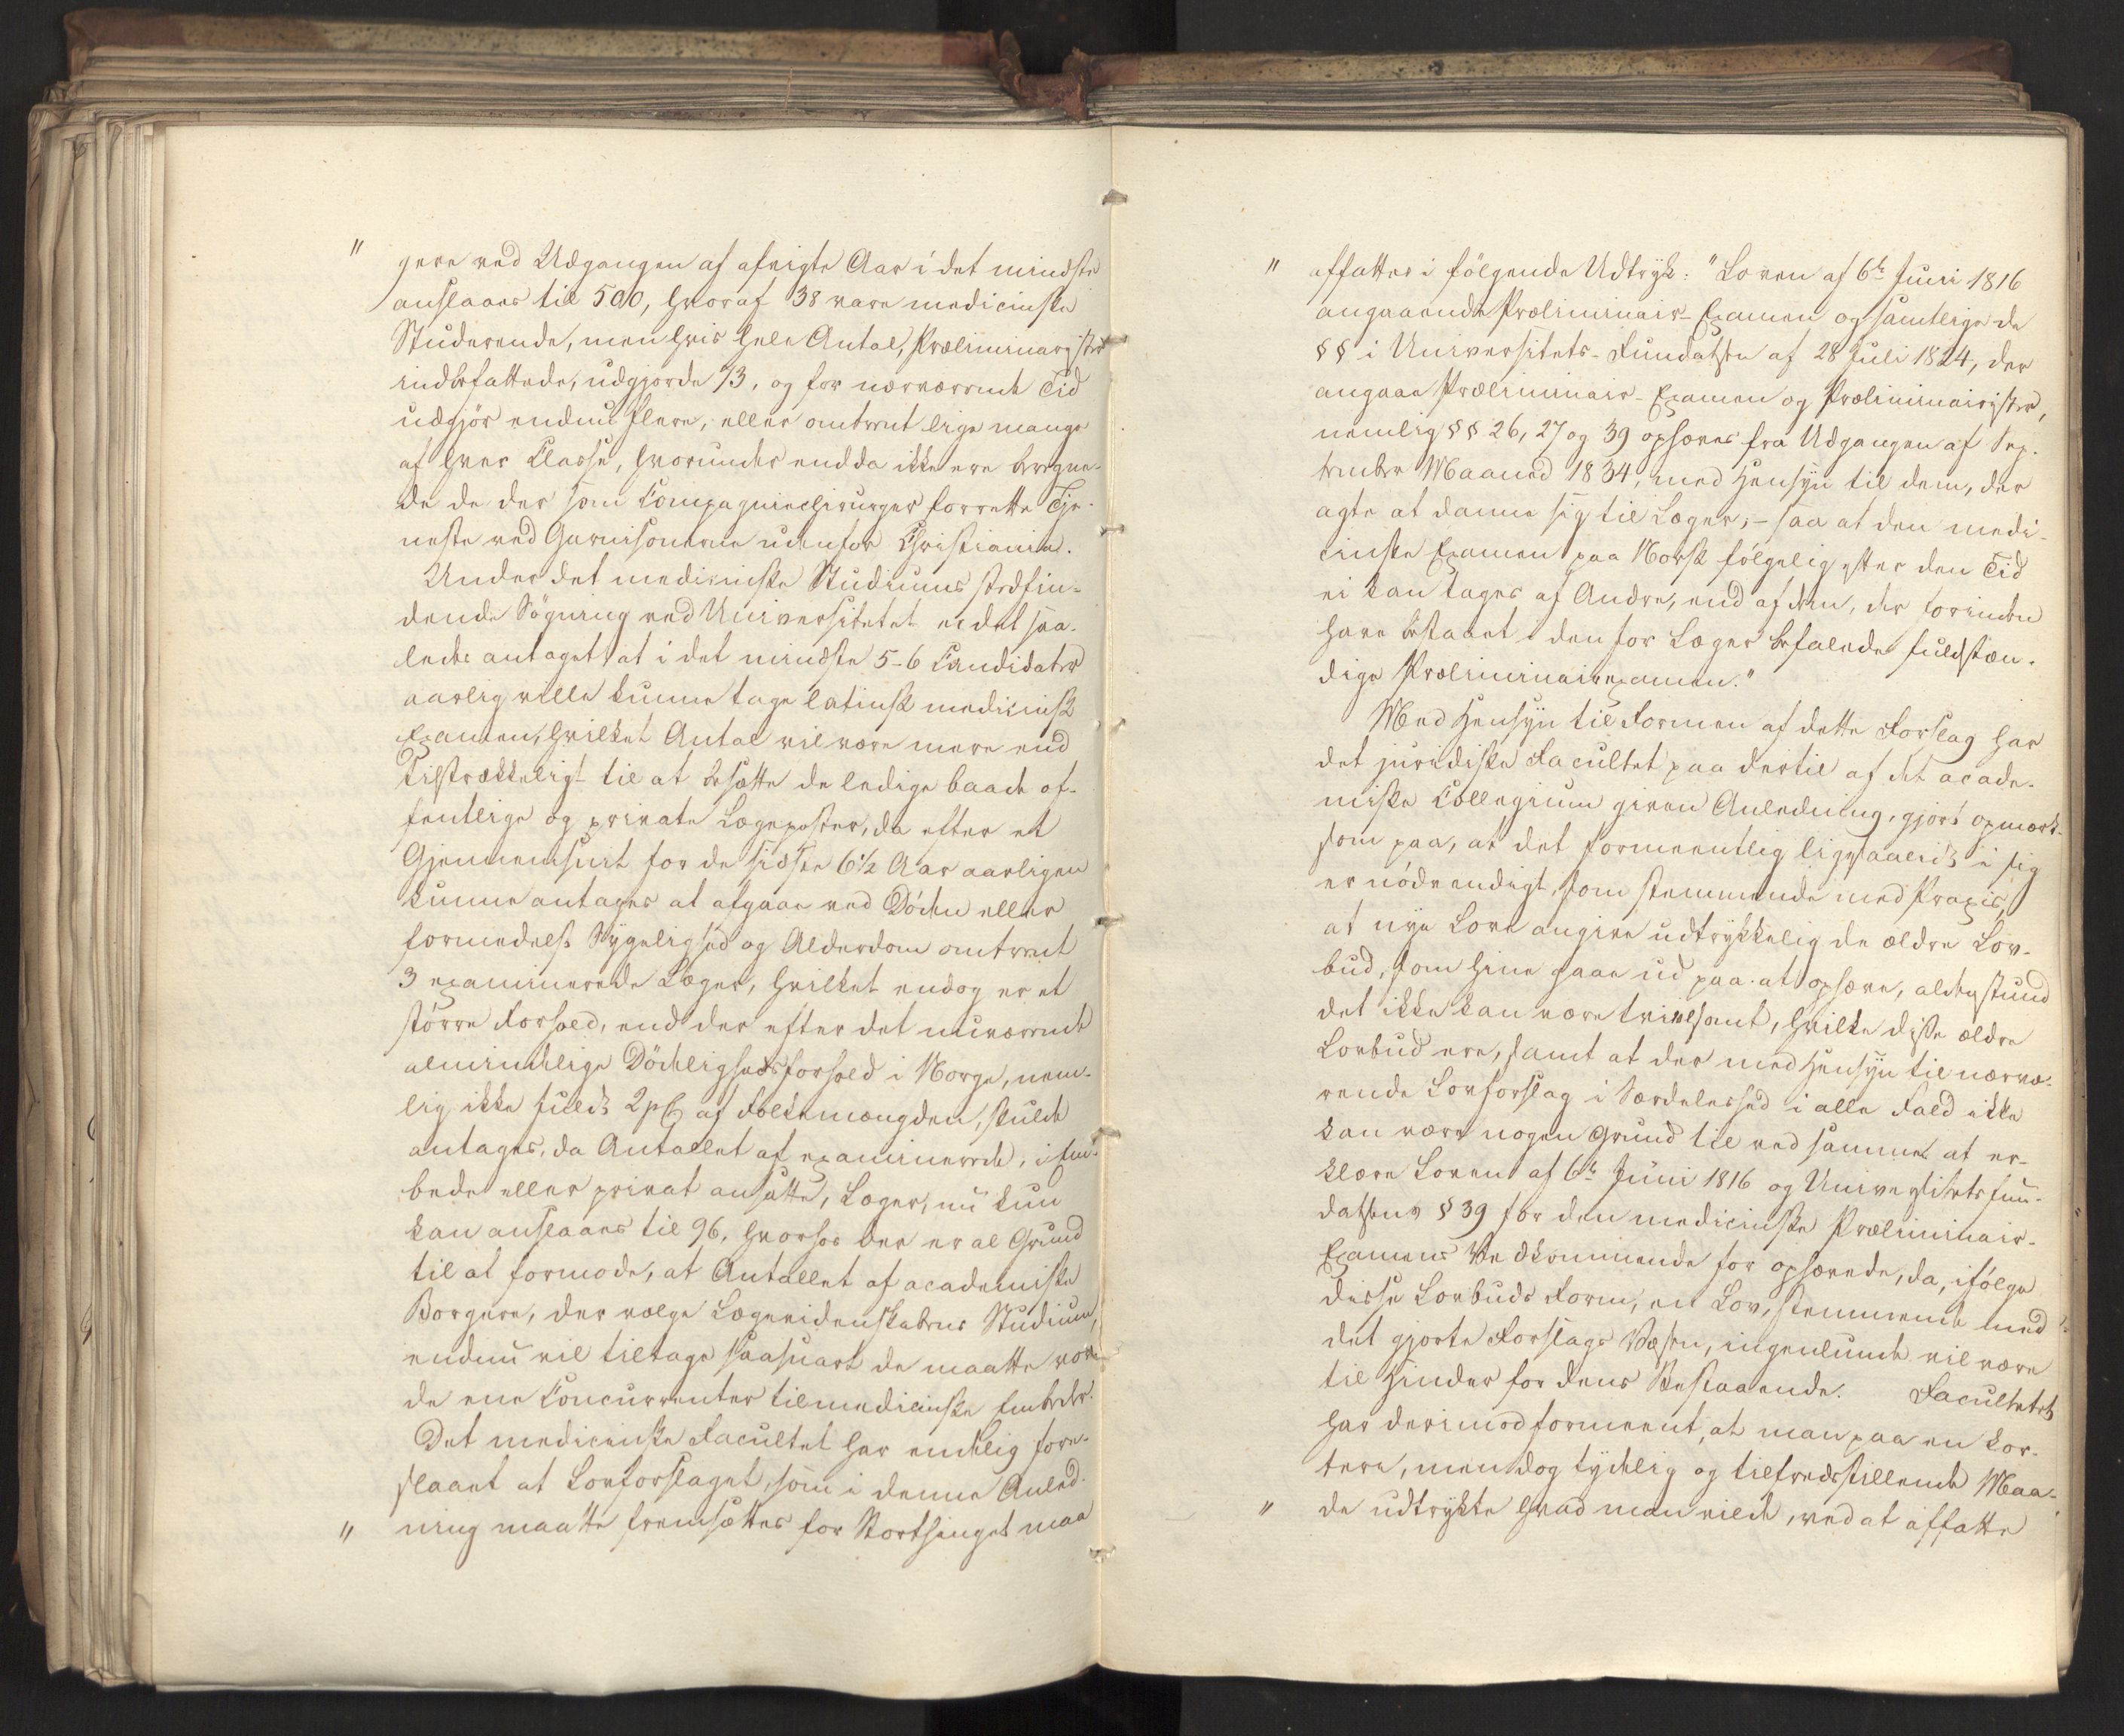 " gere ved Udgangen af afvigte Aar i det mindste
anslaaes til 500, hvoraf 38 vare medicinske
Studerende, men hvis hele Antal, Præliminarister
indbefattede, udgjorde 73, og for nærværende Tid
udgjør endnu flere, eller omtrent lige mange
af hver Classe, hvorunder endda ikke ere beregne-
de de der som Compagniechirurger forrette Tje-
neste ved Garnisonerne udenfor Christiania.
Under det medicinske Studiums stedfin-
dende Søgning ved Universitetet er det saa-
ledes antaget at i det mindste 5-6 Candidater
aarlig ville kunne tage latinsk medicinsk
Examen, hvilket Antal vil være mere end
tilstrækkeligt til at besætte de ledige baade of-
fentlige og private Lægeposter, da efter et
Gjennemsnit for de sidste 6½ Aar aarligen
kunne antages at afgaae ved Døden eller
formedelst Sygelighed og Alderdom omtrent
3 examinerede Læger, hvilket endog er et
større Forhold, end der efter det nuværende
almindelige Dødelighedsforhold i Norge, nem-
lig ikke fuldt 2 pC af Folkemængden, skulde
antages, da Antallet af examinerede, i Em-
bede eller privat ansatte, Læger, nu kun
kan anslaaes til 96, hvorhos der er al Grund
til at formode, at Antallet af academiske
Borgere, der vælge Lægevidenskabens Studium,
endnu vil tiltage saasnart de maatte vor-
de ene Concurrenter til medicinske Embeder.
Det medicinske Facultet har endelig fore-
slaaet at Lovforslaget, som i denne Anled-
" ning maatte fremsættes for Storthinget maa
" affattes i følgende Udtryk: "Loven af 6te Juni 1816
angaaende Præliminair-Examen og samtlige de
§§ i Universitets-Fundatsen af 28 Juli 1824, der
angaae Præliminair-Examen og Præliminairister,
nemlig §§ 26, 27 og 39 ophæves fra Udgangen af Sep-
tember Maaned 1834, med Hensyn til dem, der
agte at danne sig til Læger; - saa at den medi-
cinske Examen paa Norsk følgelig efter den Tid
ei kan tages af Andre, end af dem, der forinden
have bestaaet i den for Læger befalede fuldstæn-
dige Præliminairexamen."
Med Hensyn til Formen af dette Forslag har
det juridiske Facultet paa dertil af det acade-
miske Collegium given Anledning, gjort opmærk-
som paa, at det formeentlig ligesaalidt i sig
er nødvendigt, som stemmende med Praxis,
at nye Love angive udtrykkelig de ældre Lov-
bud, som hine gaae ud paa at ophæve, aldenstund
det ikke kan være tvivlsomt, hvilke disse ældre
Lovbud ere, samt at der med Hensyn til nærvæ-
rende Lovforslag i Særdeleshed i alle Fald ikke
kan være nogen Grund til ved samme at er-
klære Loven af 6te Juni 1816 og Universitetsfun-
datsens § 39 for den medicinske Præliminair-
Examens Vedkommende for ophævede, da, ifølge
disse Lovbuds Form, en Lov, stemmende med
det gjorte Forslags Væsen, ingenlunde vil være
til Hinder for dens Bestaaende. Facultetet
har derimod formeent, at man paa en kor-
tere, men dog tydelig og tilfredsstillende Maa-
" de udtrykte hvad man vilde, ved at affatte